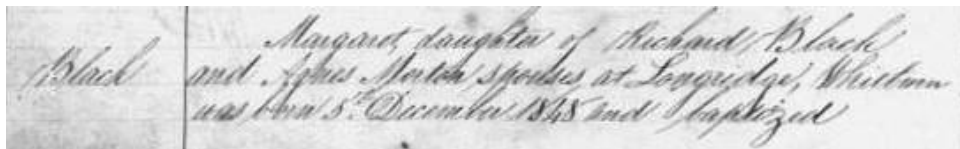 Margaret, daughter of Richard Black
Black
and Agnes Morton spouses, at Longridge, Whitburn
was born 5th December 1848 and baptized